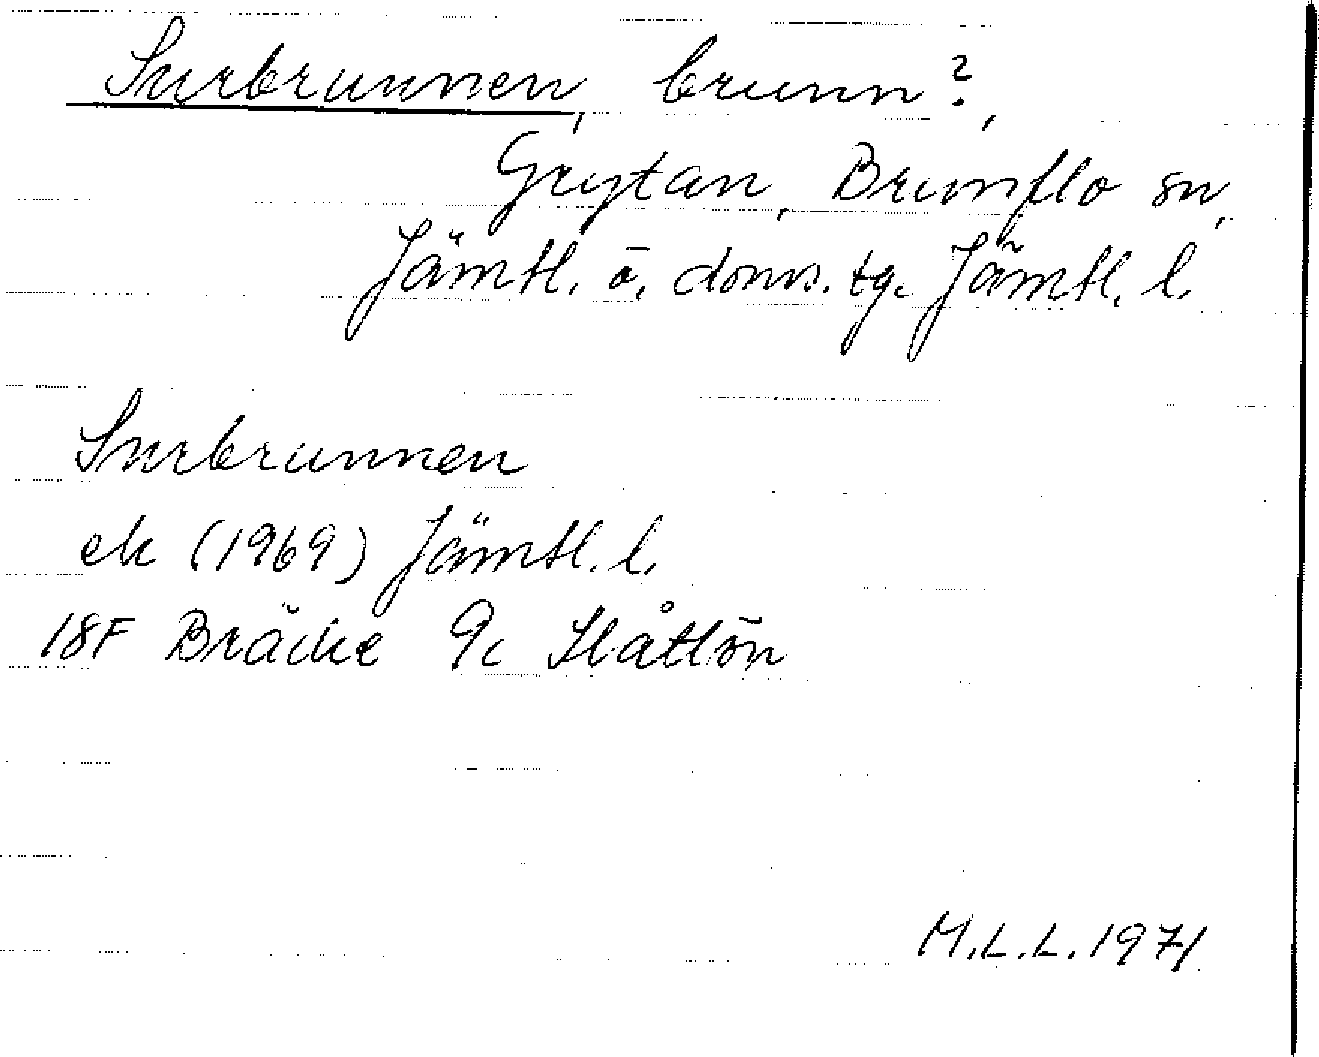 Surbrunnen, brunn?,
Grytan, Brunflo sn,
Jämtl. ö. doms. tg. Jämtl. l.
Surbrunnen
ek (1969) Jämtl. l.
18F Bräcke 9c Slåttön
M.L.L. 1971